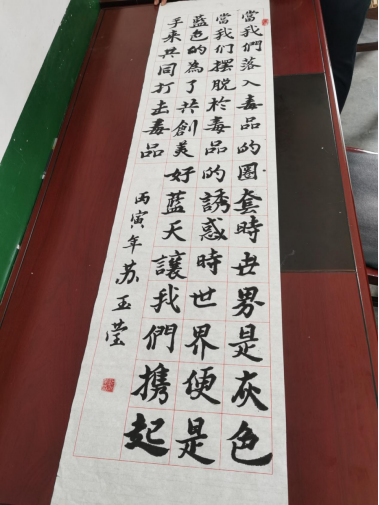 當我們落入毒品的圈套時世界是灰色
當我们擺脫於毒品的誘惑時世界便是
藍色的為了共創美好藍天讓我們携起
手来共同打击毒品
丙寅年苏玉莹